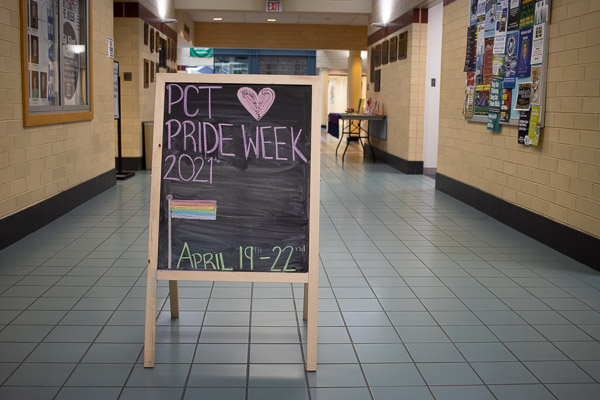 EXIT
PCT
PRIDE WEEK
2021
APRIL 19th - 22nd